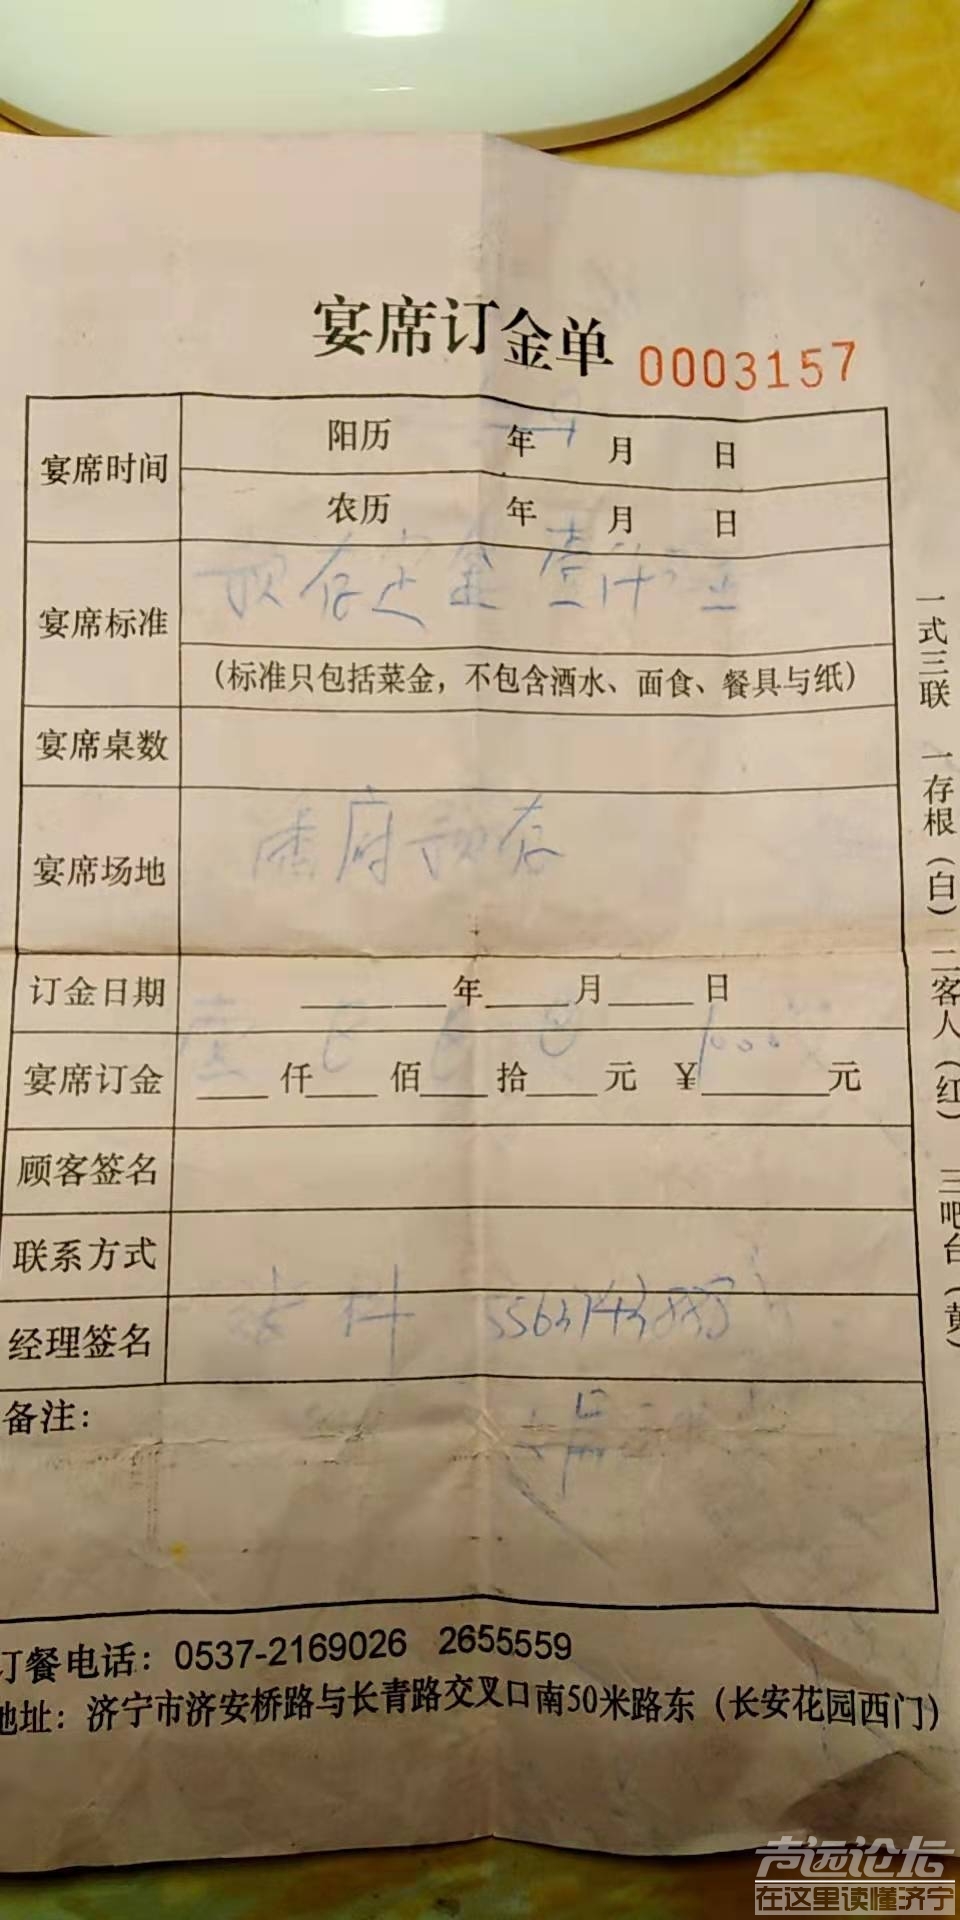 宴席订金单 0003157
宴席时间 阳历 年 月 日
农历 年 月 日
宴席标准 预存定金壹仟元
(标准只包括菜金，不包含酒水、面食、餐具与纸)
宴席桌数
宴席场地 府预存
订金日期 年 月 日
宴席订金 壹 仟 佰 拾 元 ¥ 1000 元
顾客签名
联系方式
经理签名
备注：
订餐电话：0537-2169026 2655559
地址：济宁市济安桥路与长青路交叉口南50米路东（长安花园西门）
一式三联 一存根（白）二客人（红） 三吧台（黄）
声远论坛
在这里读懂济宁